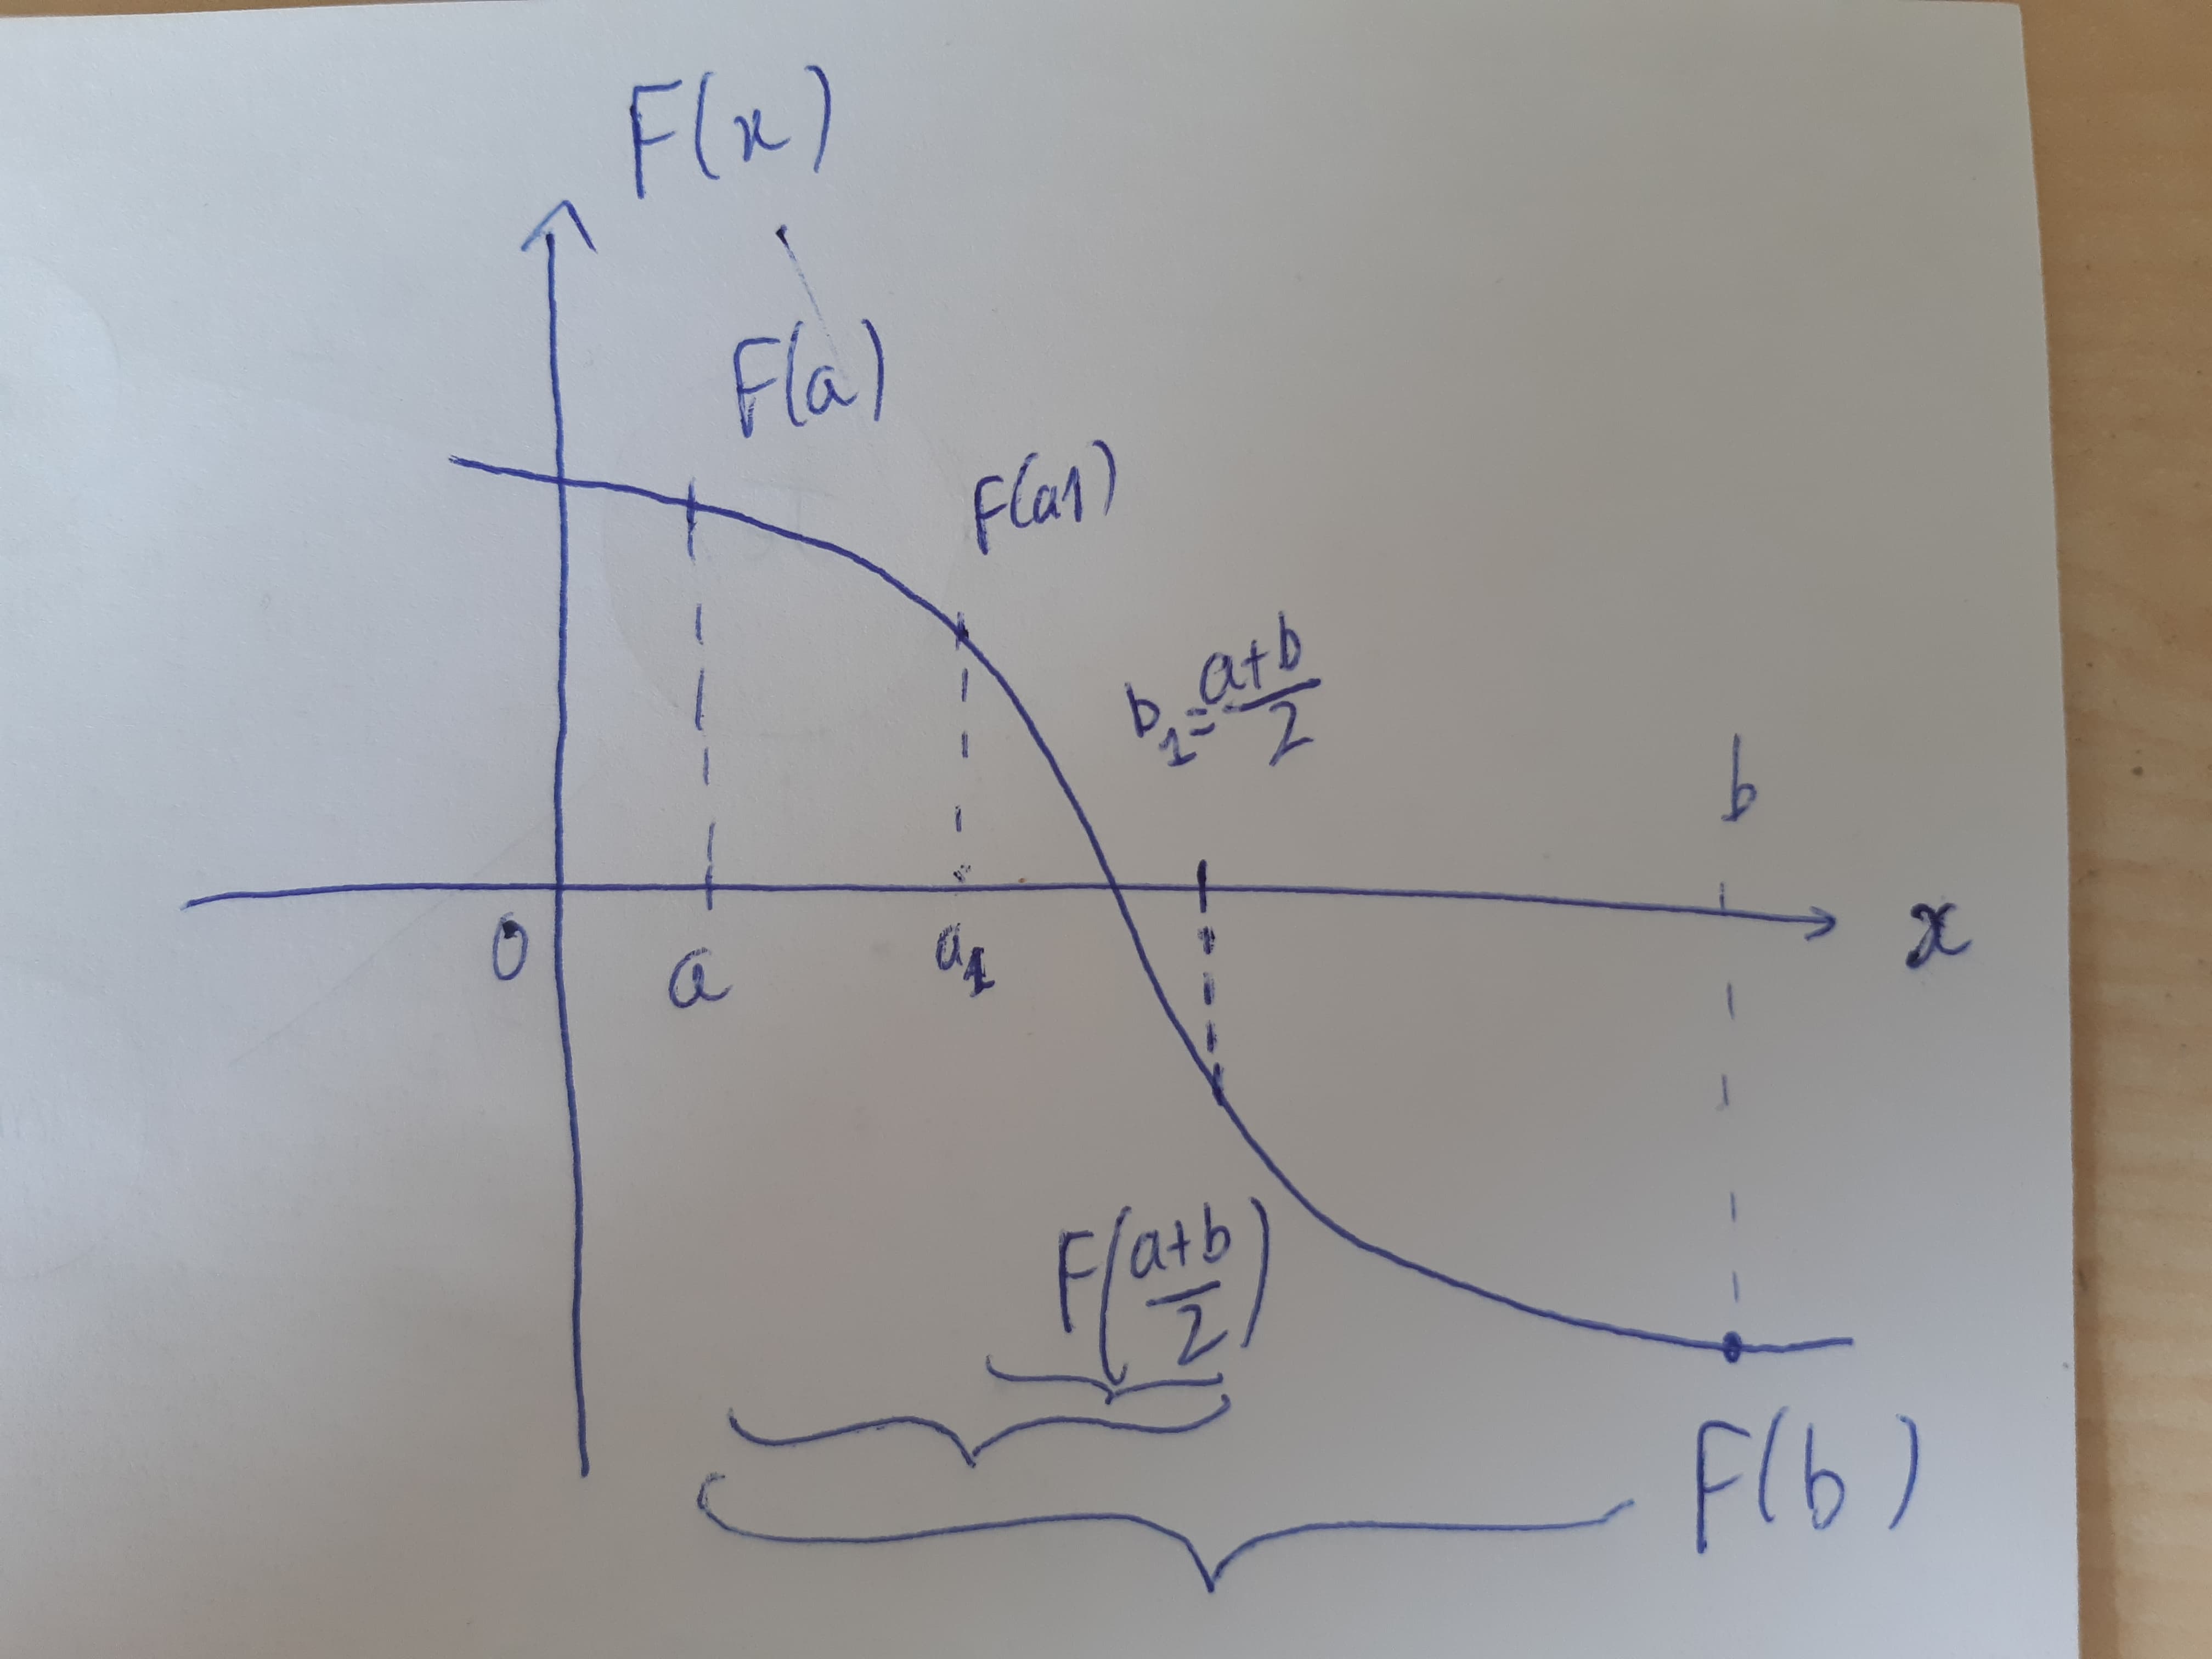 F(x)
F(a)
F(a1)
b₁=a+b/2
b
0
a
a₁
x
F(a+b/2)
F(b)